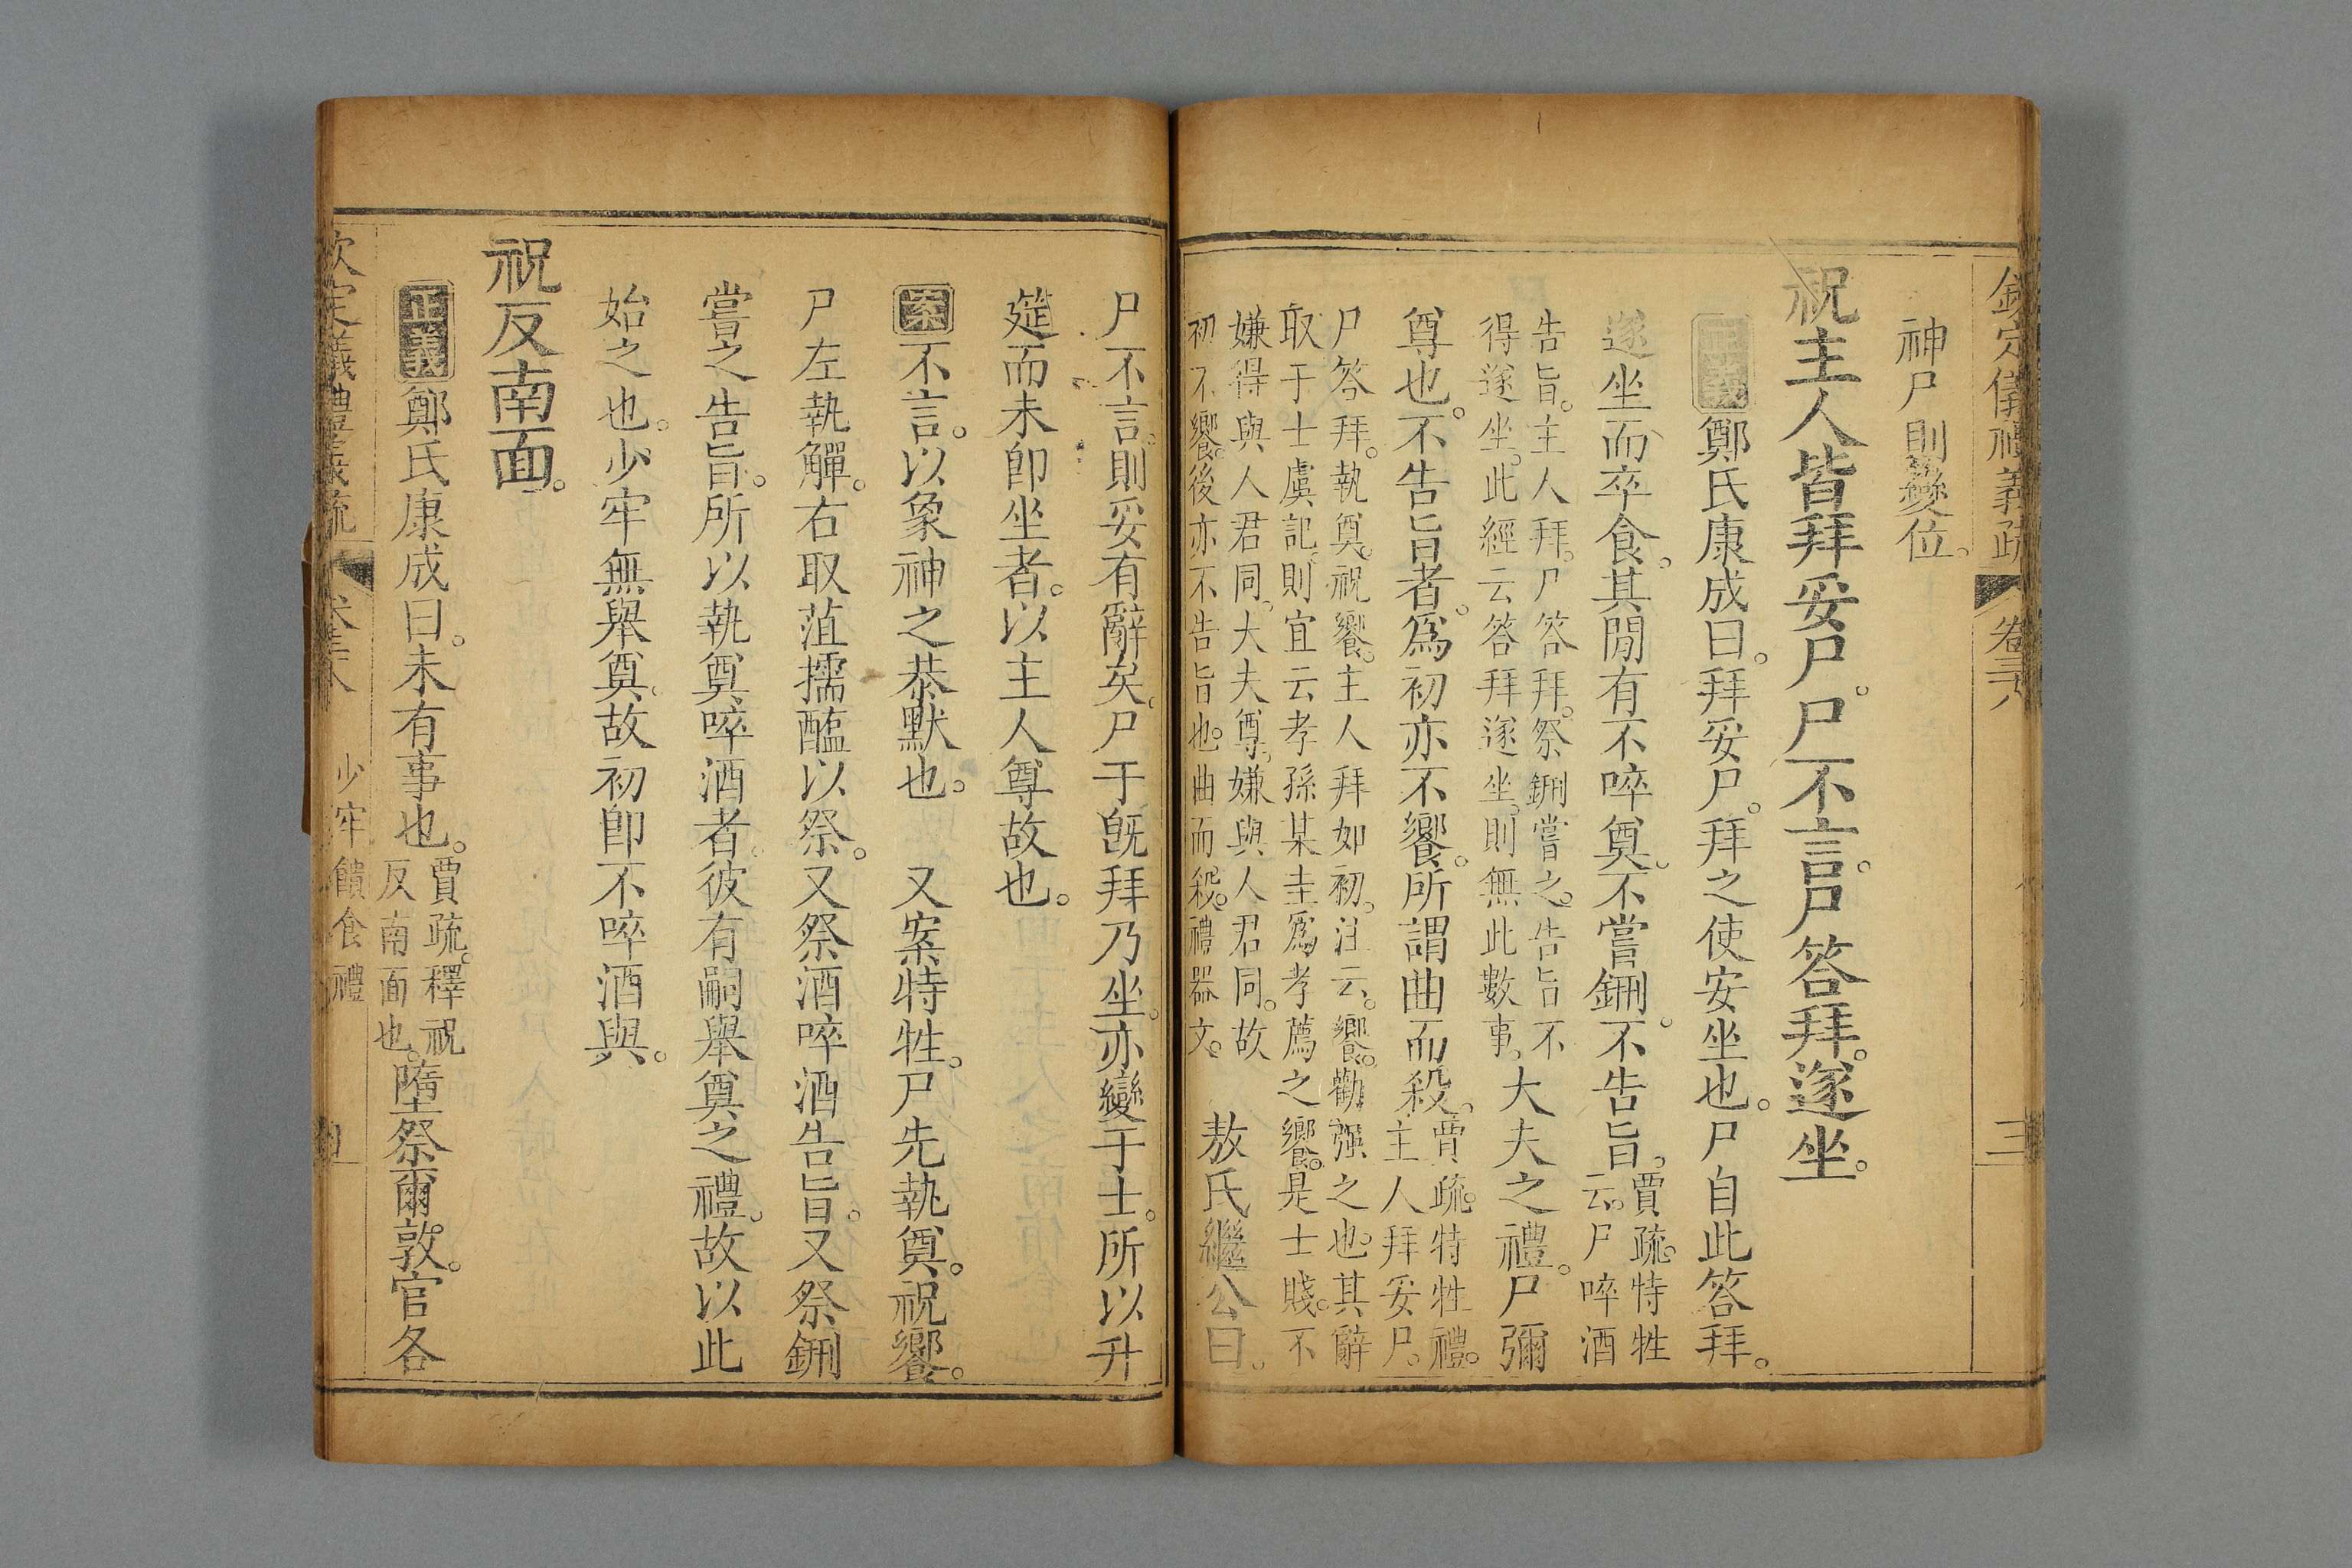 欽定儀禮義疏 卷三十八 三
神尸則變位。
祝主人皆拜妥尸。尸不言。尸答拜。遂坐。
正義鄭氏康成曰。拜妥尸。拜之使安坐也。尸自此答拜。
遂坐而卒食。其閒有不啐奠。不嘗鉶。不告旨。賈疏。特牲
云。尸啐酒
告旨。主人拜。尸答拜。祭鉶嘗之。告旨。不
得遂坐。此經云答拜遂坐。則無此數事。大夫之禮。尸彌
尊也。不告旨者。爲初亦不饗。所謂曲而殺。賈疏。特牲禮。
主人拜妥尸。
尸答拜。執奠。祝饗。主人拜如初。注云。饗。勸强之也。其辭
取于士虞記。則宜云孝孫某圭爲孝薦之饗。是士賤。不
嫌得與人君同。大夫尊。嫌與人君同。故
初不饗。後亦不告旨也。曲而殺。禮器文。敖氏繼公曰。
尸不言。則妥有辭矣。尸于旣拜乃坐。亦變于士。所以升
筵而未卽坐者。以主人尊故也。
案不言。以象神之恭默也。 又案特牲。尸先執奠。祝饗。
尸左執觶。右取菹擩醢以祭。又祭酒啐酒告旨。又祭鉶
嘗之告旨。所以執奠啐酒者。彼有嗣舉奠之禮。故以此
始之也。少牢無舉奠。故初卽不啐酒與。
祝反南面。
正義鄭氏康成曰。未有事也。賈疏。釋祝
反南面也。墮祭爾敦。官各
欽定儀禮義疏 卷三十八 少牢饋食禮